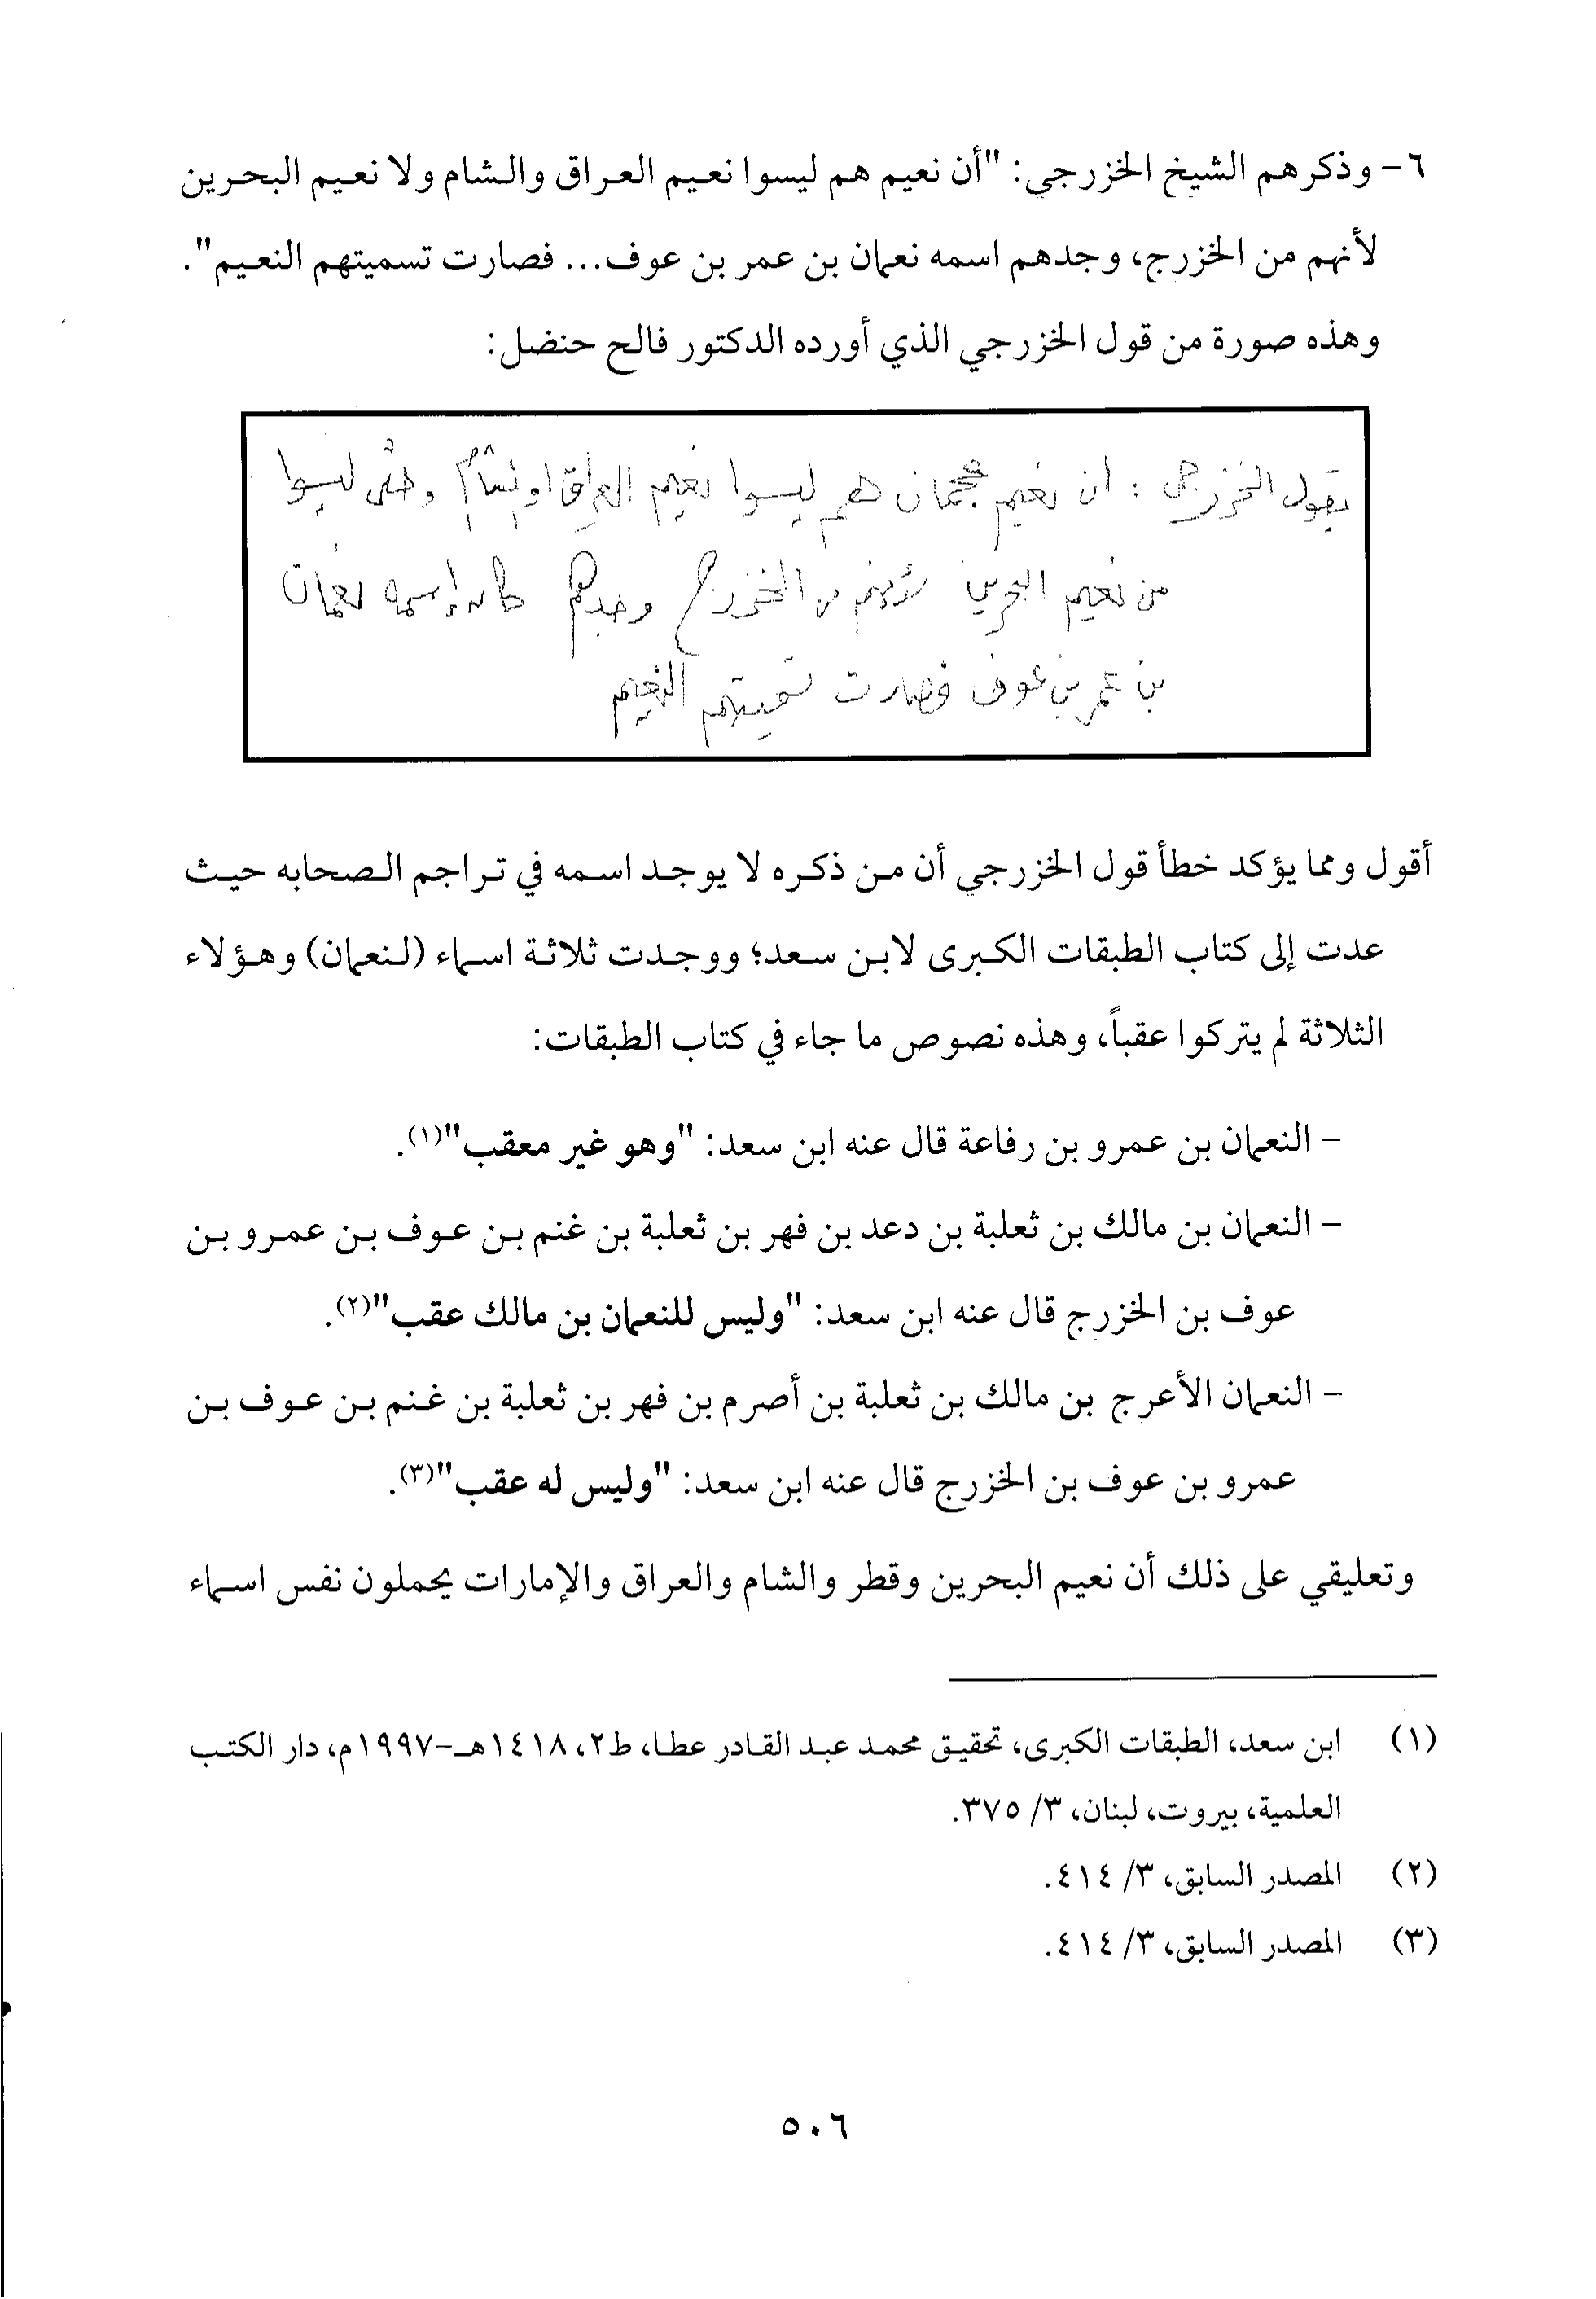 ٦- وذكرهم الشيخ الخزرجي: "أن نعيم هم ليسوا نعيم العراق والشام ولا نعيم البحرين
لأنهم من الخزرج، وجدهم اسمه نعمان بن عمر بن عوف... فصارت تسميتهم النعيم".
وهذه صورة من قول الخزرجي الذي أورده الدكتور فالح حنضل:
يقول الخزرجي : ان نعيم عجمان هم ليسوا نعيم العراق او الشام وحتى ليسوا
من نعيم البحرين لأنهم من الخزرج وجدهم كان إسمه نعمان
بن عمر بن عوف فصارت تسميتهم النعيم
أقول ومما يؤكد خطأ قول الخزرجي أن من ذكره لا يوجد اسمه في تراجم الصحابه حيث
عدت إلى كتاب الطبقات الكبرى لابن سعد؛ ووجدت ثلاثة اسماء (لنعمان) وهؤلاء
الثلاثة لم يتركوا عقباً، وهذه نصوص ما جاء في كتاب الطبقات:
- النعمان بن عمرو بن رفاعة قال عنه ابن سعد: "وهو غير معقب"(١).
- النعمان بن مالك بن ثعلبة بن دعد بن فهر بن ثعلبة بن غنم بن عوف بن عمرو بن
عوف بن الخزرج قال عنه ابن سعد: "وليس للنعمان بن مالك عقب"(٢).
- النعمان الأعرج بن مالك بن ثعلبة بن أصرم بن فهر بن ثعلبة بن غنم بن عوف بن
عمرو بن عوف بن الخزرج قال عنه ابن سعد: "وليس له عقب"(٣).
وتعليقي على ذلك أن نعيم البحرين وقطر والشام والعراق والإمارات يحملون نفس اسماء
(١) ابن سعد، الطبقات الكبرى، تحقيق محمد عبد القادر عطا، ط٢، ١٤١٨هـ-١٩٩٧م، دار الكتب
العلمية، بيروت، لبنان، ٣/ ٣٧٥.
(٢) المصدر السابق، ٣/ ٤١٤.
(٣) المصدر السابق، ٣/ ٤١٤.
٥٠٦